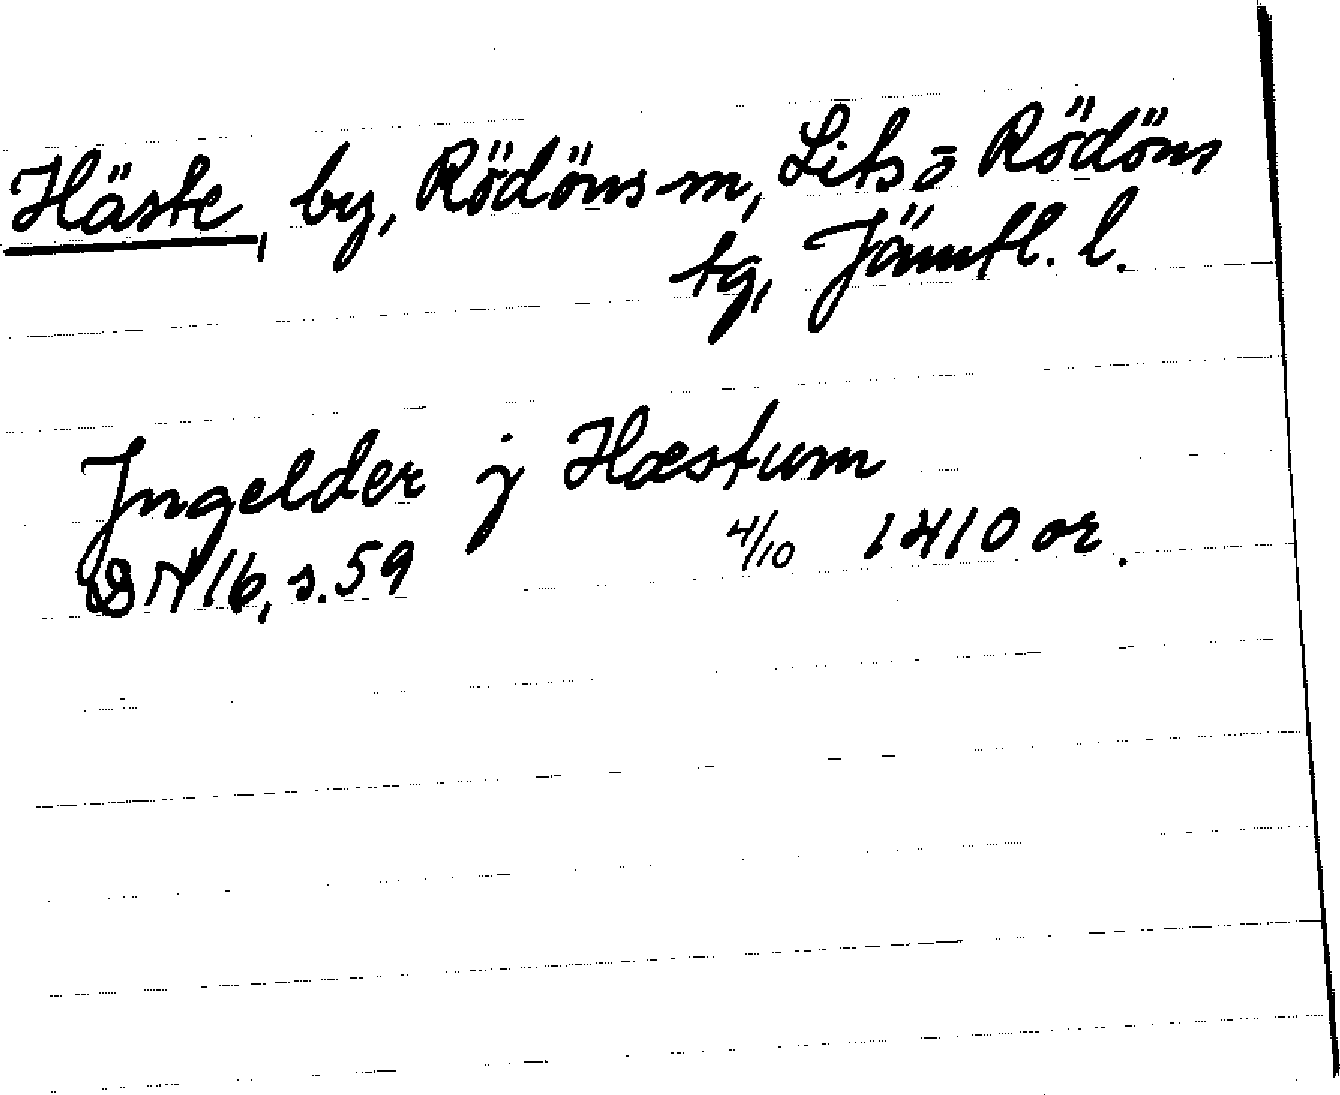 Häste, by, Rödöns sn, Lits o Rödöns
tg, Jämtl. l.
Jngelder j Hæstum
DN 16, s. 59 4/10 1410 or.